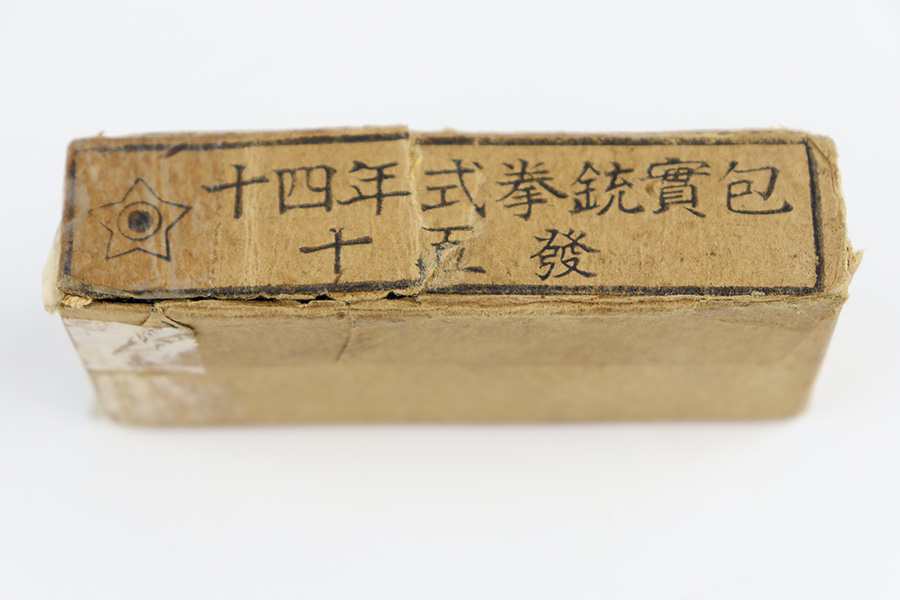 十四年式拳銃實包
十五發